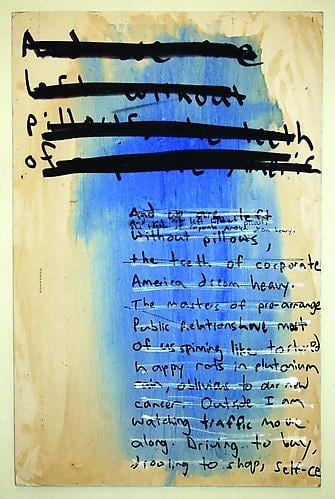 And we are
left without
pillows, the teeth
of
And we are left
without pillows,
the teeth of corporate
America dream heavy.
The masters of pre-arrange
Public Relations have most
of us spinning like tortured
happy rats in plutonium
oblivios to our new
cancer. Outside I am
watching traffic move
along. Driving to buy,
drooling to shop, self-ce